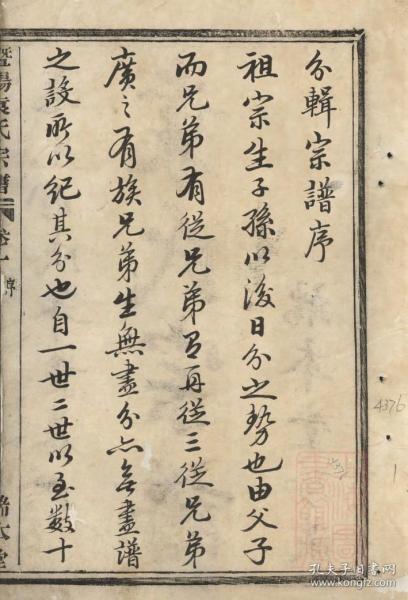 分輯宗譜序
祖宗生子孫以後日分之勢也由父子
而兄弟有從兄弟有再從三從兄弟
廣之有族兄弟生無盡分亦無盡譜
之設所以紀其分也自一世二世以至數十
暨陽袁氏宗譜 卷一 序
4376
1
孔夫子旧书网
www.kongfz.com